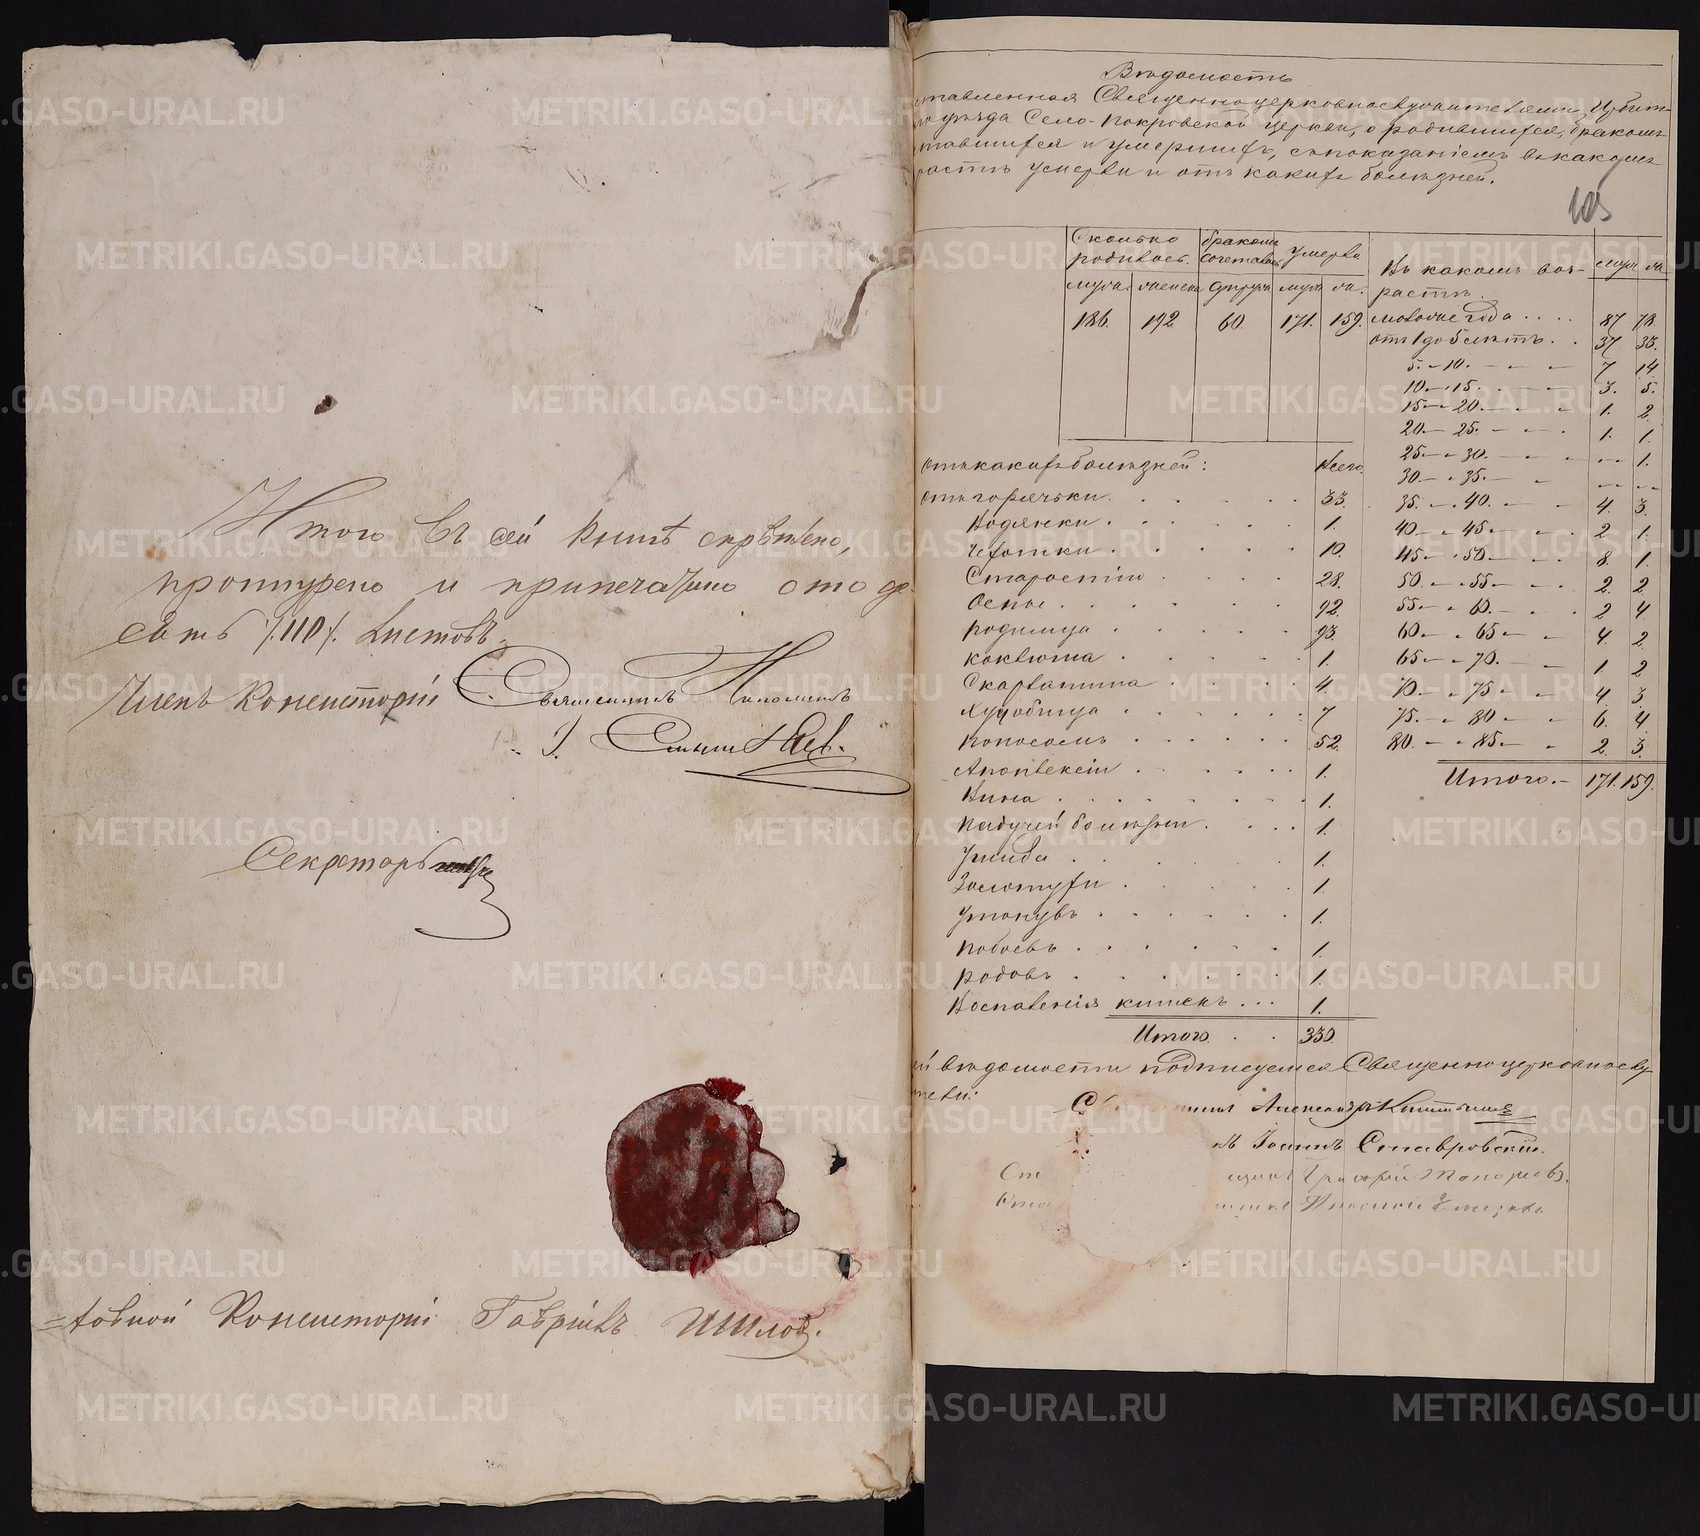 Итого въ сей книгѣ скрѣплено,
прошнурено и припечатано сто де-
сять /:110:/ листовъ.
Членъ Консисторіи Священникъ
Секретарь
-ховной Консисторіи Гавріилъ
Вѣдомость
ставленная Священноцерковнослужителями, Ирбит-
уѣзда Село-Покровской церкви, о родившихся, бракомъ
тавшихся и умершихъ, съ показаніемъ въ какомъ
растѣ умерли и отъ какихъ болѣзней.
105
Сколько родилось. бракомъ сочеталось умерло Въ какомъ воз-растѣ. муж жен
мужск женск супруж муж жен
186. 192 60. 171. 159. моложе года . . . . 87 78.
отъ 1 до 5 лѣтъ . . 37 33.
5. - 10. 7 14
10. - 15. 3. 5.
15 - 20. 1. 2.
20. - 25. 1. 1.
25. - 30. - 1.
30 - 35. - -
35. - 40. 4. 3.
40 - 45. 2 1.
45 - 50. 8. 1.
50. - 55. 2. 2.
55. - 60. 2 4.
60. - 65. 4. 2.
65. - 70. 1 2
70. - 75. 4. 3.
75. - 80. 6. 4.
80. - 85. 2. 3.
Итого. - 171. 159.
отъ какихъ болѣзней: Всего.
отъ горячки. 33.
Водянки. 1.
Чахотки. 10.
Старостію 28.
Оспы. 92.
Родимца 93.
Коклюша 1.
Скарлатина 4.
Худобища 7
Поносомъ 52.
Апоплексіи 1.
Вина 1.
Падучей болѣзни. 1.
Ушиба 1.
Золотухи 1.
Утонувъ 1.
Побоевъ 1.
Родовъ 1.
Воспаленія кишекъ . . . 1.
Итого 330.
й вѣдомости подписуемся Священноцерковнослу-
тели:
Александръ
Іоаннъ Ставровскій.
Григорій Топорковъ.
METRIKI.GASO-URAL.RU